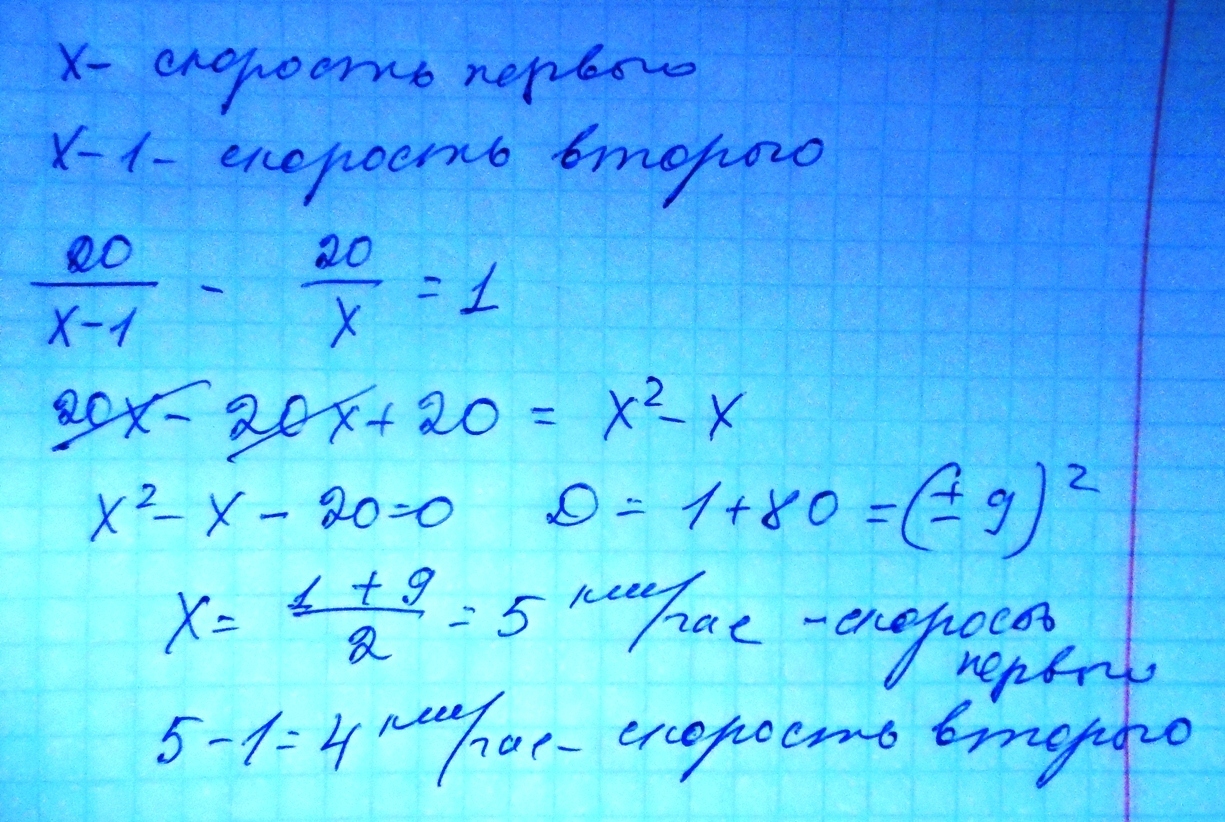 х - скорость первого
х - 1 - скорость второго
20/(х-1) - 20/х = 1
20х - 20х + 20 = х² - х
х² - х - 20 = 0 D = 1 + 80 = (± 9)²
х = (1 + 9)/2 = 5 км/час - скорость первого
5 - 1 = 4 км/час - скорость второго